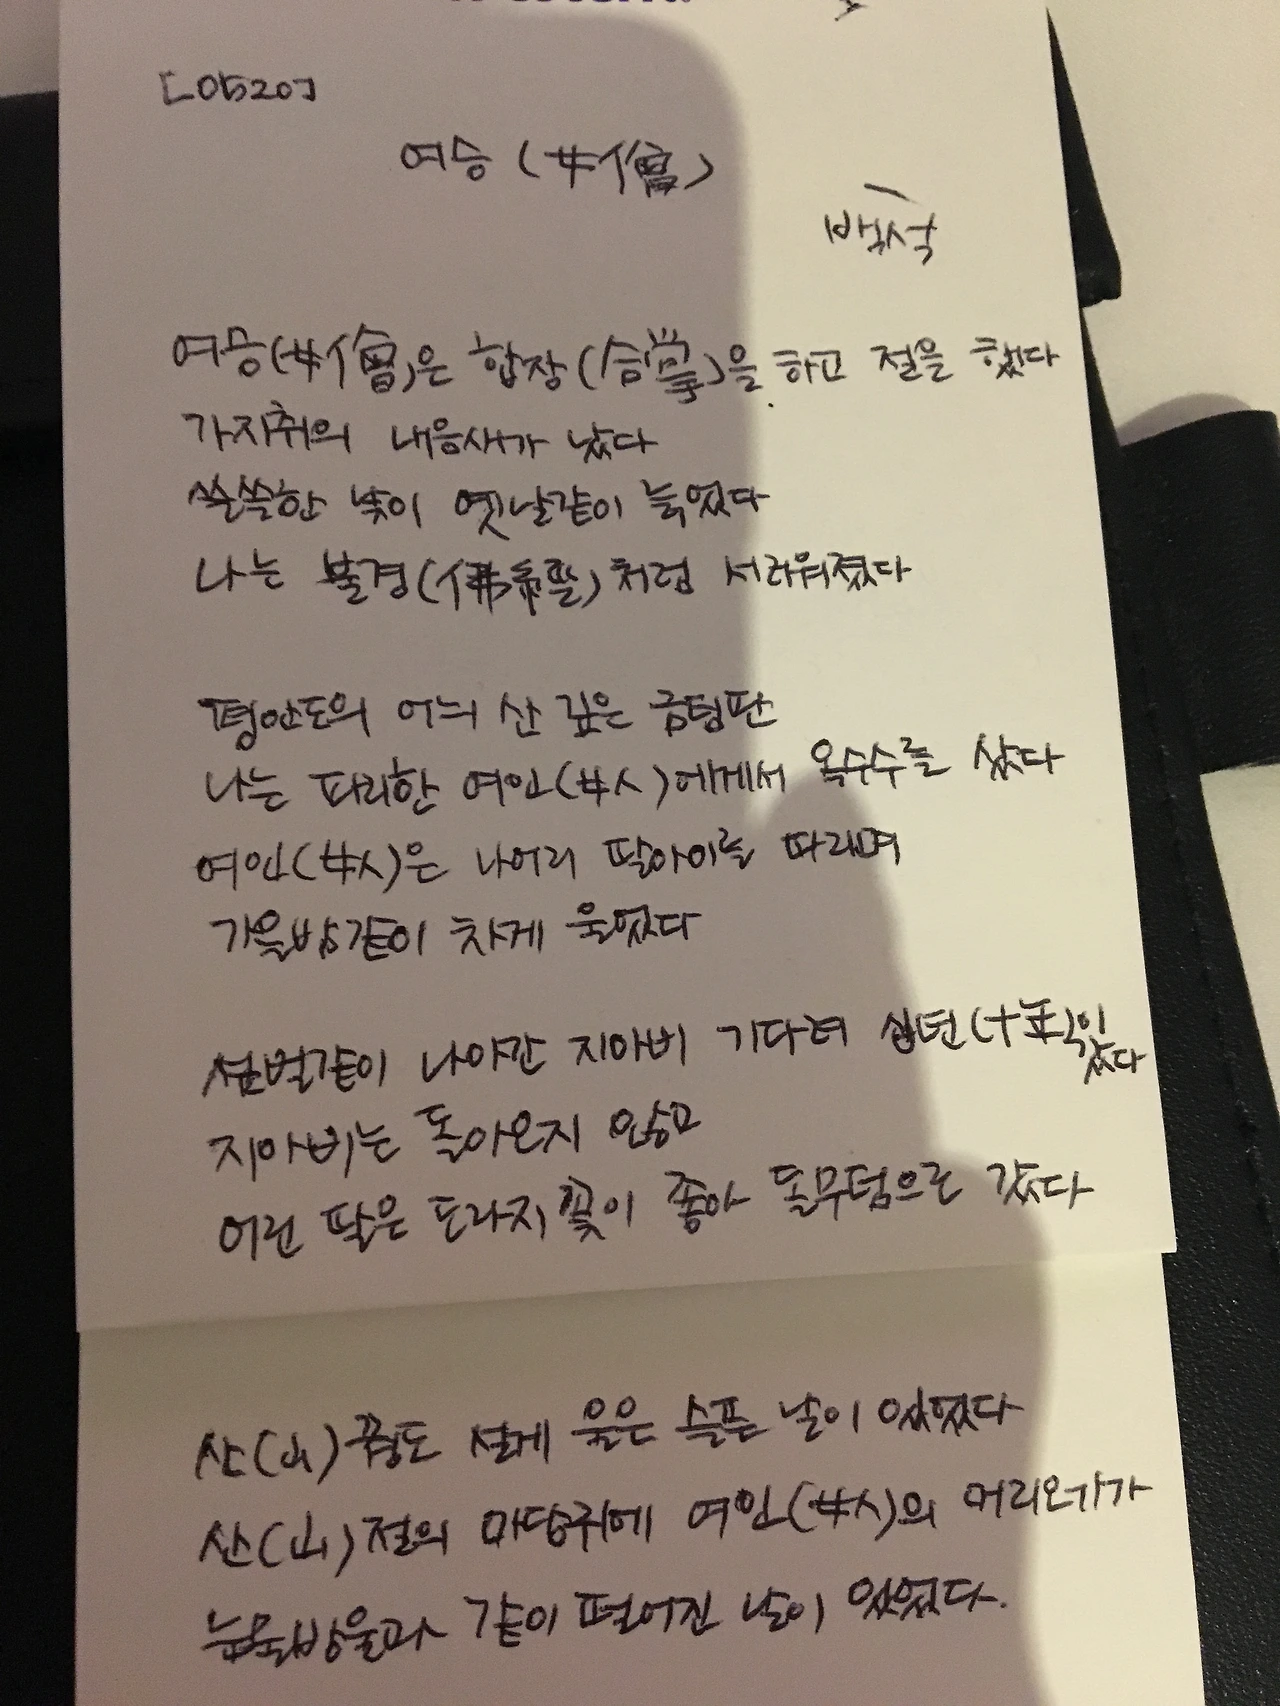 [0520]
여승(女僧)
백석
여승(女僧)은 합장(合掌)을 하고 절을 했다
가지취의 내음새가 났다
쓸쓸한 낯이 옛날같이 늙었다
나는 불경(佛經)처럼 서러워졌다
평안도의 어늬 산 깊은 금덤판
나는 파리한 여인(女人)에게서 옥수수를 샀다
여인(女人)은 나어린 딸아이를 따리며
가을밤같이 차게 울었다
섶벌같이 나아간 지아비 기다려 십년(十年)이 갔다
지아비는 돌아오지 않고
어린 딸은 도라지꽃이 좋아 돌무덤으로 갔다
산(山)꿩도 설게 울은 슬픈 날이 있었다
산(山)절의 마당귀에 여인(女人)의 머리오가가
눈물방울과 같이 떨어진 날이 있었다.